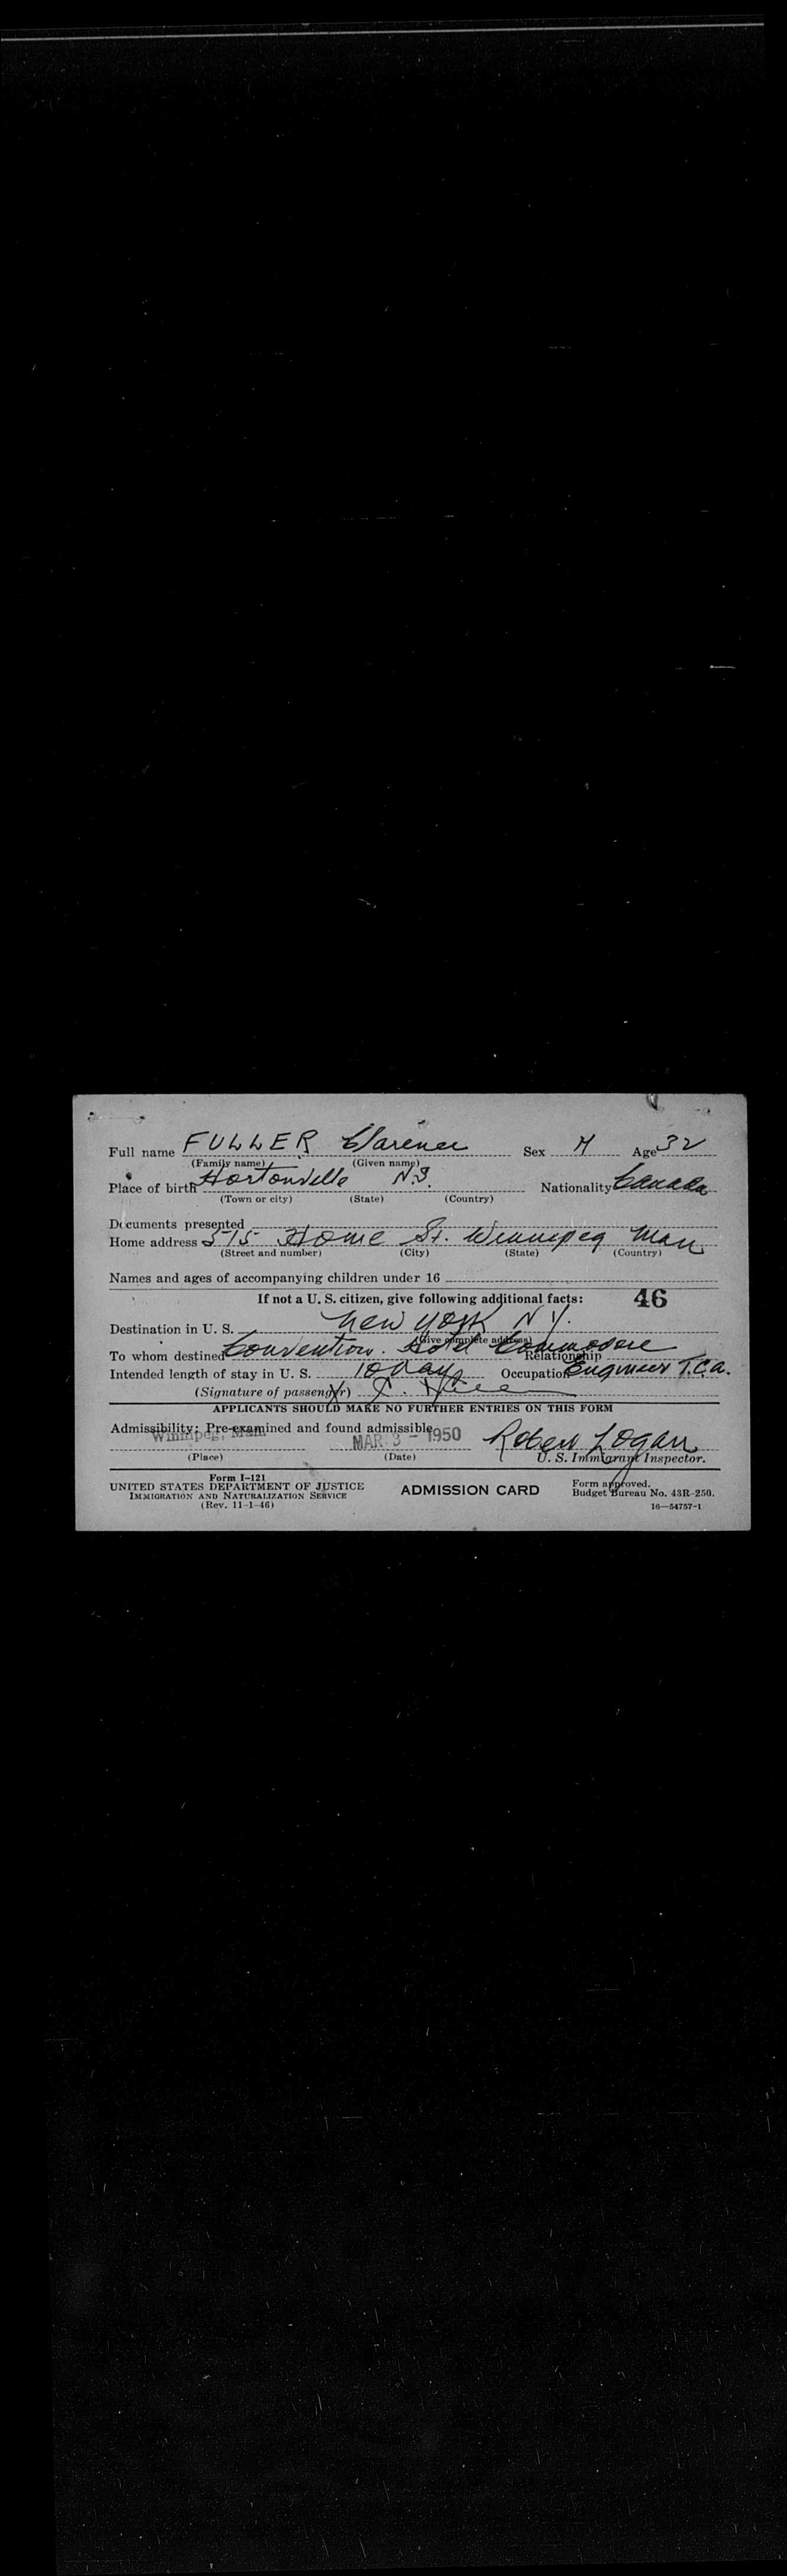 Full name FULLER Clarence Sex M Age 32
(Family name) (Given name)
Place of birth Hortonville N.S. Nationality Canada
(Town or city) (State) (Country)
Documents presented
Home address 515 Home St. Winnipeg Man
(Street and number) (City) (State) (Country)
Names and ages of accompanying children under 16
If not a U. S. citizen, give following additional facts: 46
Destination in U. S. New York N.Y.
(Give complete address)
To whom destined Convention. Hotel Commodore Relationship
Intended length of stay in U. S. 10 days Occupation Engineer T.C.A.
(Signature of passenger) X C.
APPLICANTS SHOULD MAKE NO FURTHER ENTRIES ON THIS FORM
Admissibility: Pre-examined and found admissible
Winnipeg, Man. MAR 3 - 1950 Robert Logan
(Place) (Date) U. S. Immigrant Inspector.
Form I-121
UNITED STATES DEPARTMENT OF JUSTICE
IMMIGRATION AND NATURALIZATION SERVICE
(Rev. 11-1-46)
ADMISSION CARD
Form approved.
Budget Bureau No. 43R-250.
16—54757-1